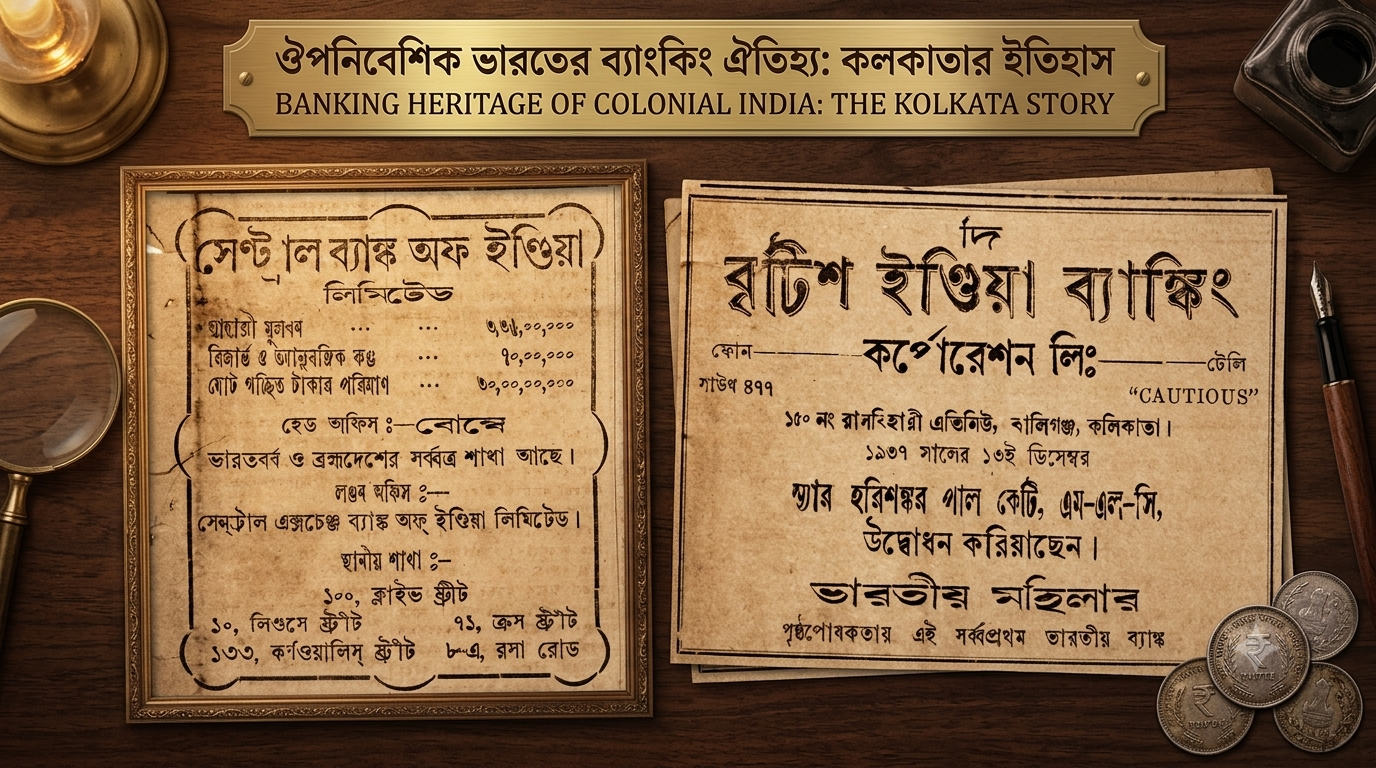 ঔপনিবেশিক ভারতের ব্যাংকিং ঐতিহ্য: কলকাতার ইতিহাস
BANKING HERITAGE OF COLONIAL INDIA: THE KOLKATA STORY
সেণ্ট্রাল ব্যাঙ্ক অফ ইণ্ডিয়া
লিমিটেড
রিজার্ভ ও ... ৭০,০০,০০০
মোট গচ্ছিত টাকার পরিমাণ ... ৩০,০০,০০,০০০
হেড অফিস :—বোম্বে
ভারতবর্ষ ও ব্রহ্মদেশের সর্ব্বত্র শাখা আছে।
লণ্ডন অফিস :—
সেন্ট্রাল এক্সচেঞ্জ ব্যাঙ্ক অফ্ ইণ্ডিয়া লিমিটেড।
স্থানীয় শাখা :—
১০০, ক্লাইভ ষ্ট্রীট
১০, লিণ্ডসে ষ্ট্রীট ৭১, ক্রস ষ্ট্রীট
১৩৩, কর্ণওয়ালিস্ ষ্ট্রীট ৮-এ, রসা রোড
দি
বৃটিশ ইণ্ডিয়া ব্যাঙ্কিং
কর্পোরেশন লিঃ
ফোন টেলি
সাউথ ৪৭৭ “CAUTIOUS”
১৫০ নং রাসবিহারী এভিনিউ, বালিগঞ্জ, কলিকাতা।
১৯৩৭ সালের ১৩ই ডিসেম্বর
স্যার হরিশঙ্কর পাল কেটি, এম-এল-সি,
উদ্বোধন করিয়াছেন।
ভারতীয় মহিলার
পৃষ্ঠপোষকতায় এই সর্ব্বপ্রথম ভারতীয় ব্যাঙ্ক